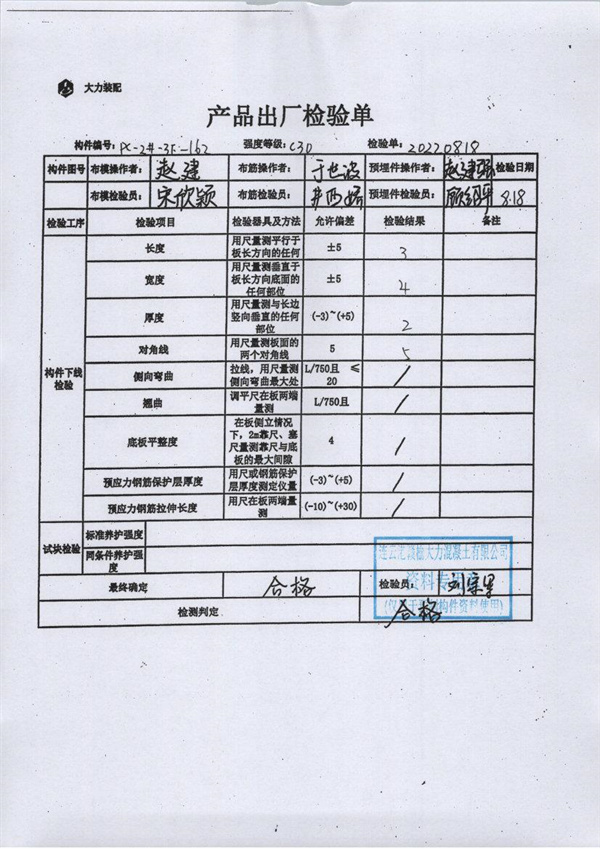 大力装配
产品出厂检验单
构件编号: PC-2#-3F-162 强度等级: C30 检验单: 20220818
构件图号 布模操作者: 赵建 布筋操作者: 于世波 预埋件操作者: 赵建强 检验日期
布模检验员: 宋欣颖 布筋检验员: 预埋件检验员: 8.18
检验工序 检验项目 检验器具及方法 允许偏差 检验结果 备注
构件下线检验
长度 用尺量测平行于板长方向的任何 ±5 3
宽度 用尺量测垂直于板长方向底面的任何部位 ±5 4
厚度 用尺量测与长边竖向垂直的任何部位 (-3)~(+5) 2
对角线 用尺量测板面的两个对角线 5 5
侧向弯曲 拉线，用尺量测侧向弯曲最大处 L/750且 ≤20 /
翘曲 调平尺在板两端量测 L/750且 /
底板平整度 在板侧立情况下，2m靠尺、塞尺量测靠尺与底板的最大间隙 4 /
预应力钢筋保护层厚度 用尺或钢筋保护层厚度测定仪量 (-3)~(+5) /
预应力钢筋拉伸长度 用尺在板两端量测 (-10)~(+30) /
试块检验 标准养护强度
同条件养护强度
连云港赣榆大力混凝土有限公司
资料专用章
最终确定 合格 检验员:
检测判定 合格